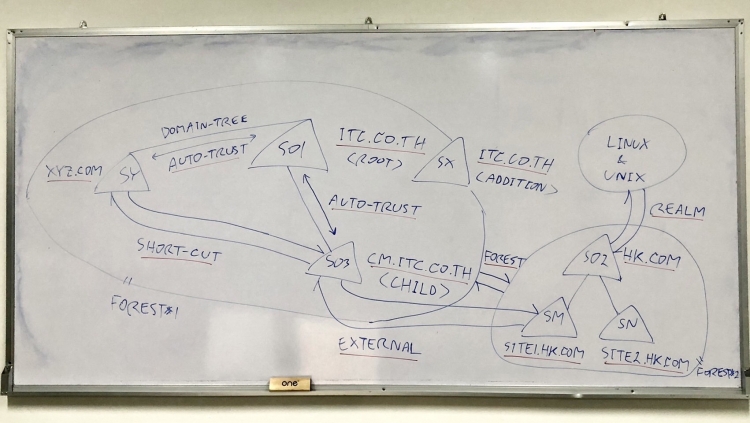 DOMAIN-TREE
AUTO-TRUST
XYZ.COM
SY
S01
ITC.CO.TH
(ROOT)
SX
ITC.CO.TH
(ADDITION)
LINUX
&
UNIX
REALM
AUTO-TRUST
SHORT-CUT
S03
CM.ITC.CO.TH
(CHILD)
FOREST
S02
HK.COM
FOREST#1
EXTERNAL
SM
SN
SITE1.HK.COM
SITE2.HK.COM
FOREST#2
one